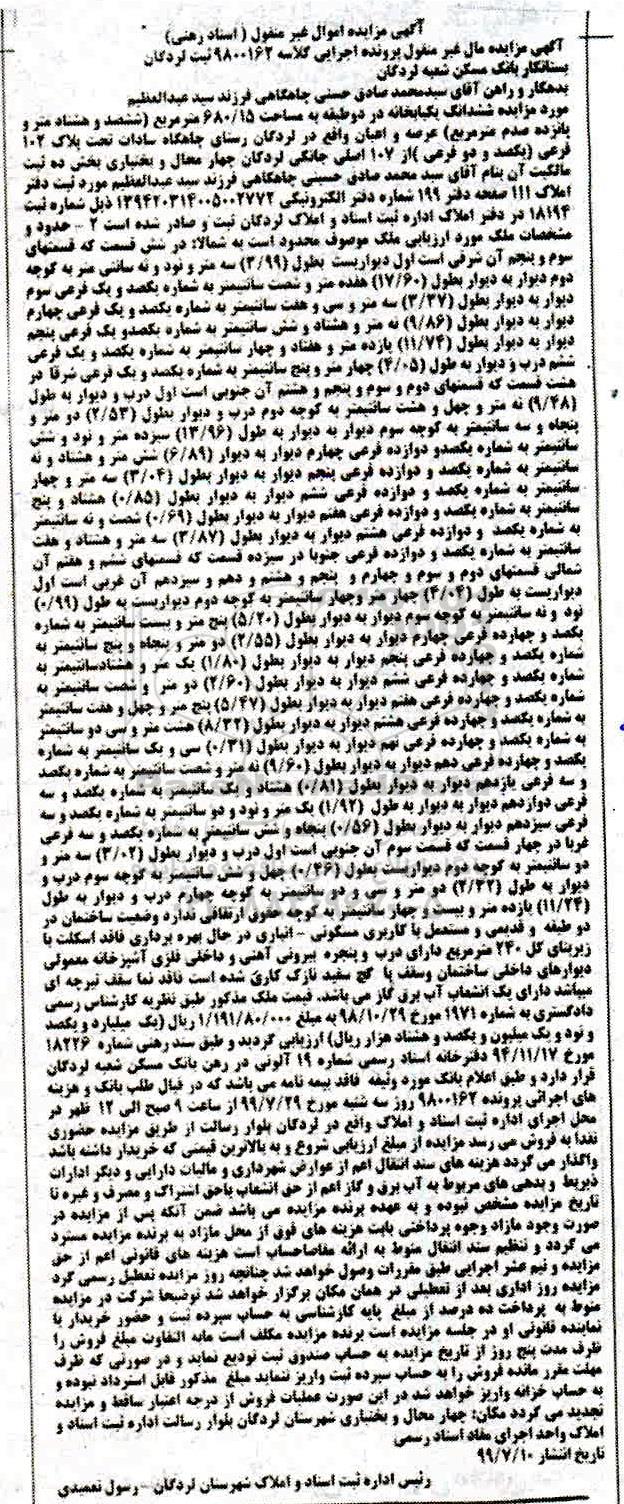 آگهی مزایده اموال غیر منقول ( اسناد رهنی)
آگهی مزایده مال غیر منقول پرونده اجرایی کلاسه ۹۸۰۰۱۶۲ ثبت لردگان
بستانکار بانک مسکن شعبه لردگان
بدهکار و راهن آقای سیدمحمد صادق حسنی چاهگاهی فرزند سید عبدالعظیم
مورد مزایده ششدانگ یکبابخانه در دوطبقه به مساحت ۶۸۰/۱۵ مترمربع (ششصد و هشتاد متر و
پانزده صدم مترمربع) عرصه و اعیان واقع در لردگان رستای چاهگاه سادات تحت پلاک ۱۰۲
فرعی (یکصد و دو فرعی )از ۱۰۷ اصلی جانکی لردگان چهار محال و بختیاری بخش ده ثبت
مالکیت آن بنام آقای سید محمد صادق حسینی چاهگاهی فرزند سید عبدالعظیم مورد ثبت دفتر
املاک ۱۱۱ صفحه دفتر ۱۹۹ شماره دفتر الکترونیکی ۱۳۹۴۲۰۳۱۴۰۰۵۰۰۲۷۷۲ ذیل شماره ثبت
۱۸۱۹۴ در دفتر املاک اداره ثبت اسناد و املاک لردگان ثبت و صادر شده است ۲ - حدود و
مشخصات ملک مورد ارزیابی ملک موصوف محدود است به شمالا: در شش قسمت که قسمتهای
سوم و پنجم آن شرقی است اول دیواریست بطول (۳/۹۹) سه متر و نود و نه سانتی متر به کوچه
دوم دیوار به دیوار بطول (۱۷/۶۰) هفده متر و شصت سانتیمتر به شماره یکصد و یک فرعی سوم
دیوار به دیوار بطول (۳/۳۷) سه متر و سی و هفت سانتیمتر به شماره یکصد و یک فرعی چهارم
دیوار به دیوار بطول (۹/۸۶) نه متر و هشتاد و شش سانتیمتر به شماره یکصدو یک فرعی پنجم
دیوار به دیوار بطول (۱۱/۷۴) یازده متر و هفتاد و چهار سانتیمتر به شماره یکصد و یک فرعی
ششم درب و دیوار به طول (۴/۰۵) چهار متر و پنج سانتیمتر به شماره یکصد و یک فرعی شرقا در
هشت قسمت که قسمتهای دوم و سوم و پنجم و هشتم آن جنوبی است اول درب و دیوار به طول
(۹/۴۸) نه متر و چهل و هشت سانتیمتر به کوچه دوم درب و دیوار بطول (۲/۵۳) دو متر و
پنجاه و سه سانتیمتر به کوچه سوم دیوار به دیوار به طول (۱۳/۹۶) سیزده متر و نود و شش
سانتیمتر به شماره یکصدو دوازده فرعی چهارم دیوار به دیوار (۶/۸۹) شش متر و هشتاد و نه
سانتیمتر به شماره یکصد و دوازده فرعی پنجم دیوار به دیوار بطول (۳/۰۴) سه متر و چهار
سانتیمتر به شماره یکصد و دوازده فرعی ششم دیوار به دیوار بطول (۰/۸۵) هشتاد و پنج
سانتیمتر به شماره یکصد و دوازده فرعی هفتم دیوار به دیوار بطول (۰/۶۹) شصت و نه سانتیمتر
به شماره یکصد و دوازده فرعی هشتم دیوار به دیوار بطول (۳/۸۷) سه متر و هشتاد و هفت
سانتیمتر به شماره یکصد و دوازده فرعی جنوبا در سیزده قسمت که قسمتهای ششم و هفتم آن
شمالی قسمتهای دوم و سوم و چهارم و پنجم و هشتم و دهم و سیزدهم آن غربی است اول
دیواریست به طول (۴/۰۴) چهار متر وچهار سانتیمتر به کوچه دوم دیواریست به طول (۰/۹۹)
نود و نه سانتیمتر به کوچه سوم دیوار به دیوار بطول (۵/۲۰) پنج متر و بیست سانتیمتر به شماره
یکصد و چهارده فرعی چهارم دیوار به دیوار بطول (۲/۵۵) دو متر و پنجاه و پنج سانتیمتر به
شماره یکصد و چهارده فرعی پنجم دیوار به دیوار بطول (۱/۸۰) یک متر و هشتادسانتیمتر به
شماره یکصد و چهارده فرعی ششم دیوار به دیوار بطول (۲/۶۰) دو متر و شصت سانتیمتر به
شماره یکصد و چهارده فرعی هفتم دیوار به دیوار بطول (۵/۴۷) پنج متر و چهل و هفت سانتیمتر
به شماره یکصد و چهارده فرعی هشتم دیوار به دیوار بطول (۸/۳۲) هشت متر و سی دو سانتیمتر
به شماره یکصد و چهارده فرعی نهم دیوار به دیوار بطول (۰/۳۱) سی و یک سانتیمتر به شماره
یکصد و چهارده فرعی دهم دیوار به دیوار بطول (۹/۶۰) نه متر و شصت سانتیمتر به شماره یکصد
و سه فرعی یازدهم دیوار به دیوار بطول (۰/۸۱) هشتاد و یک سانتیمتر به شماره یکصد و سه
فرعی دوازدهم دیوار به دیوار به طول (۱/۹۲) یک متر و نود و دو سانتیمتر به شماره یکصد و سه
فرعی سیزدهم دیوار به دیوار بطول (۰/۵۶) پنجاه و شش سانتیمتر به شماره یکصد و سه فرعی
غربا در چهار قسمت که قسمت سوم آن جنوبی است اول درب و دیوار بطول (۳/۰۲) سه متر و
دو سانتیمتر به کوچه دوم دیواریست بطول (۰/۴۶) چهل و شش سانتیمتر به کوچه سوم درب و
دیوار به طول (۲/۳۲) دو متر و سی و دو سانتیمتر به کوچه چهارم درب و دیوار به طول
(۱۱/۲۴) یازده متر و بیست و چهار سانتیمتر به کوچه حقوق ارتفاقی ندارد وضعیت ساختمان در
دو طبقه و قدیمی و مستعمل با کاربری مسکونی - انباری در حال بهره برداری فاقد اسکلت با
زیربنای کل ۲۴۰ مترمربع دارای درب و پنجره بیرونی آهنی و داخلی فلزی آشپزخانه معمولی
دیوارهای داخلی ساختمان وسقف با گچ سفید نازک کاری شده است فاقد نما سقف تیرچه ای
میباشد دارای یک انشعاب آب برق گاز می باشد. قیمت ملک مذکور طبق نظریه کارشناس رسمی
دادگستری به شماره ۱۹۷۱ مورخ ۹۸/۱۰/۲۹ به مبلغ ۱/۱۹۱/۸۰/۰۰۰ ریال (یک میلیارد و یکصد
و نود و یک میلیون و یکصد و هشتاد هزار ریال) ارزیابی گردید و طبق سند رهنی شماره ۱۸۲۲۶
مورخ ۹۴/۱۱/۱۷ دفترخانه اسناد رسمی شماره ۱۹ آلونی در رهن بانک مسکن شعبه لردگان
قرار دارد و طبق اعلام بانک مورد وثیقه فاقد بیمه نامه می باشد که در قبال طلب بانک و هزینه
های اجرائی پرونده ۹۸۰۰۱۶۲ روز سه شنبه مورخ ۹۹/۷/۲۹ از ساعت ۹ صبح الی ۱۲ ظهر در
محل اجرای اداره ثبت اسناد و املاک واقع در لردگان بلوار رسالت از طریق مزایده حضوری
نقدا به فروش می رسد مزایده از مبلغ ارزیابی شروع و به بالاترین قیمتی که خریدار داشته باشد
واگذار می گردد هزینه های سند انتقال اعم از عوارض شهرداری و مالیات دارایی و دیگر ادارات
ذیربط و بدهی های مربوط به آب برق و گاز اعم از حق انشعاب یاحق اشتراک و مصرف و غیره تا
تاریخ مزایده مشخص نبوده و به عهده برنده مزایده می باشد ضمن آنکه پس از مزایده در
صورت وجود مازاد وجوه پرداختی بابت هزینه های فوق از محل مازاد به برنده مزایده مسترد
می گردد و تنظیم سند انتقال منوط به ارائه مفاصاحساب است هزینه های قانونی اعم از حق
مزایده و نیم عشر اجرایی طبق مقررات وصول خواهد شد چنانچه روز مزایده تعطیل رسمی گرد
مزایده روز اداری بعد از تعطیلی در همان مکان برگزار خواهد شد توضیحا شرکت در مزایده
منوط به پرداخت ده درصد از مبلغ پایه کارشناسی به حساب سپرده ثبت و حضور خریدار یا
نماینده قانونی او در جلسه مزایده است برنده مزایده مکلف است مابه التفاوت مبلغ فروش را
ظرف مدت پنج روز از تاریخ مزایده به حساب صندوق ثبت تودیع نماید و در صورتی که ظرف
مهلت مقرر مانده فروش را به حساب سپرده ثبت واریز ننماید مبلغ مذکور قابل استرداد نبوده و
به حساب خزانه واریز خواهد شد در این صورت عملیات فروش از درجه اعتبار ساقط و مزایده
تجدید می گردد مکان: چهار محال و بختیاری شهرستان لردگان بلوار رسالت اداره ثبت اسناد و
املاک واحد اجرای مفاد اسناد رسمی
تاریخ انتشار ۹۹/۷/۱۰
رئیس اداره ثبت اسناد و املاک شهرستان لردگان - رسول نعمیدی